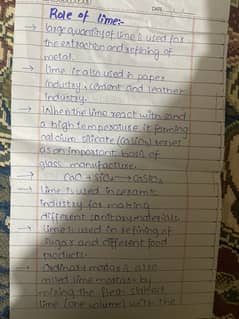 DATE
Role of lime:-
→ large quantity of lime is used for
the extraction and refining of
metal.
→ lime is also used in paper
industry, cement and leather
industry.
→ When the lime react with sand
a high temperature it forming
calcium silicate (CaSiO3) serves
as an important basis of
glass manufacture.
→ CaO + SiO2 → CaSiO3
→ lime is used in ceramic
industry for making
different sanitary materials.
→ lime is used in refining of
sugar and different food
products.
→ Ordinary mortar is also
mixed lime mortar by
mixing the fresh slaked
lime (one volume) with the